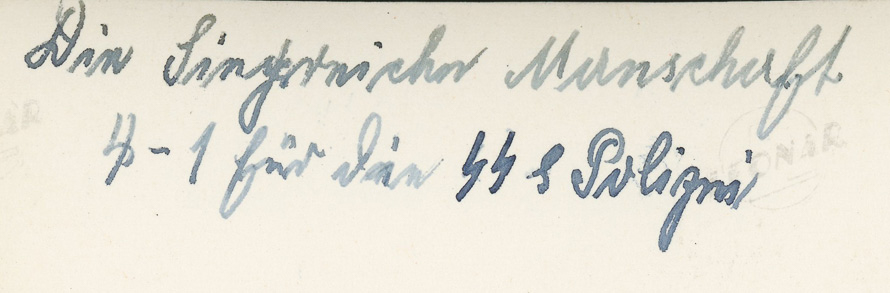 Die Siegreiche Manschaft
4-1 für die SS & Polizei